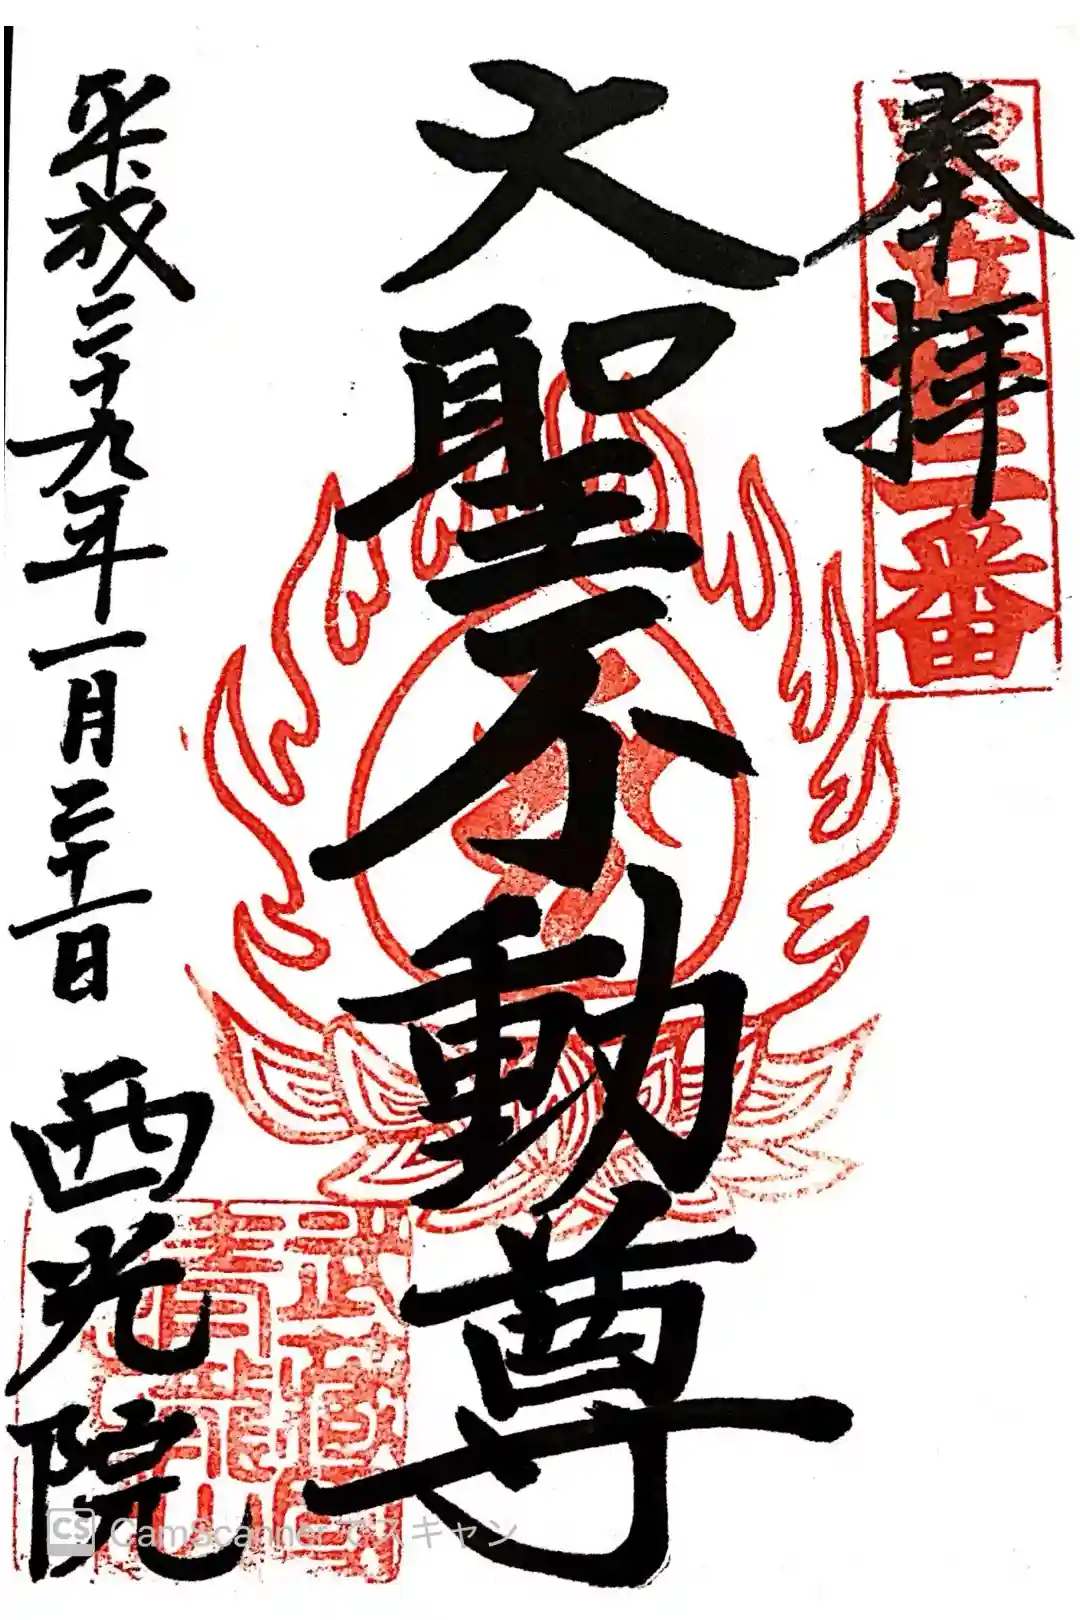 奉拝
番
大聖不動尊
平成二十九年一月二十一日 西光院
武蔵国
CS CamScannerでスキャン